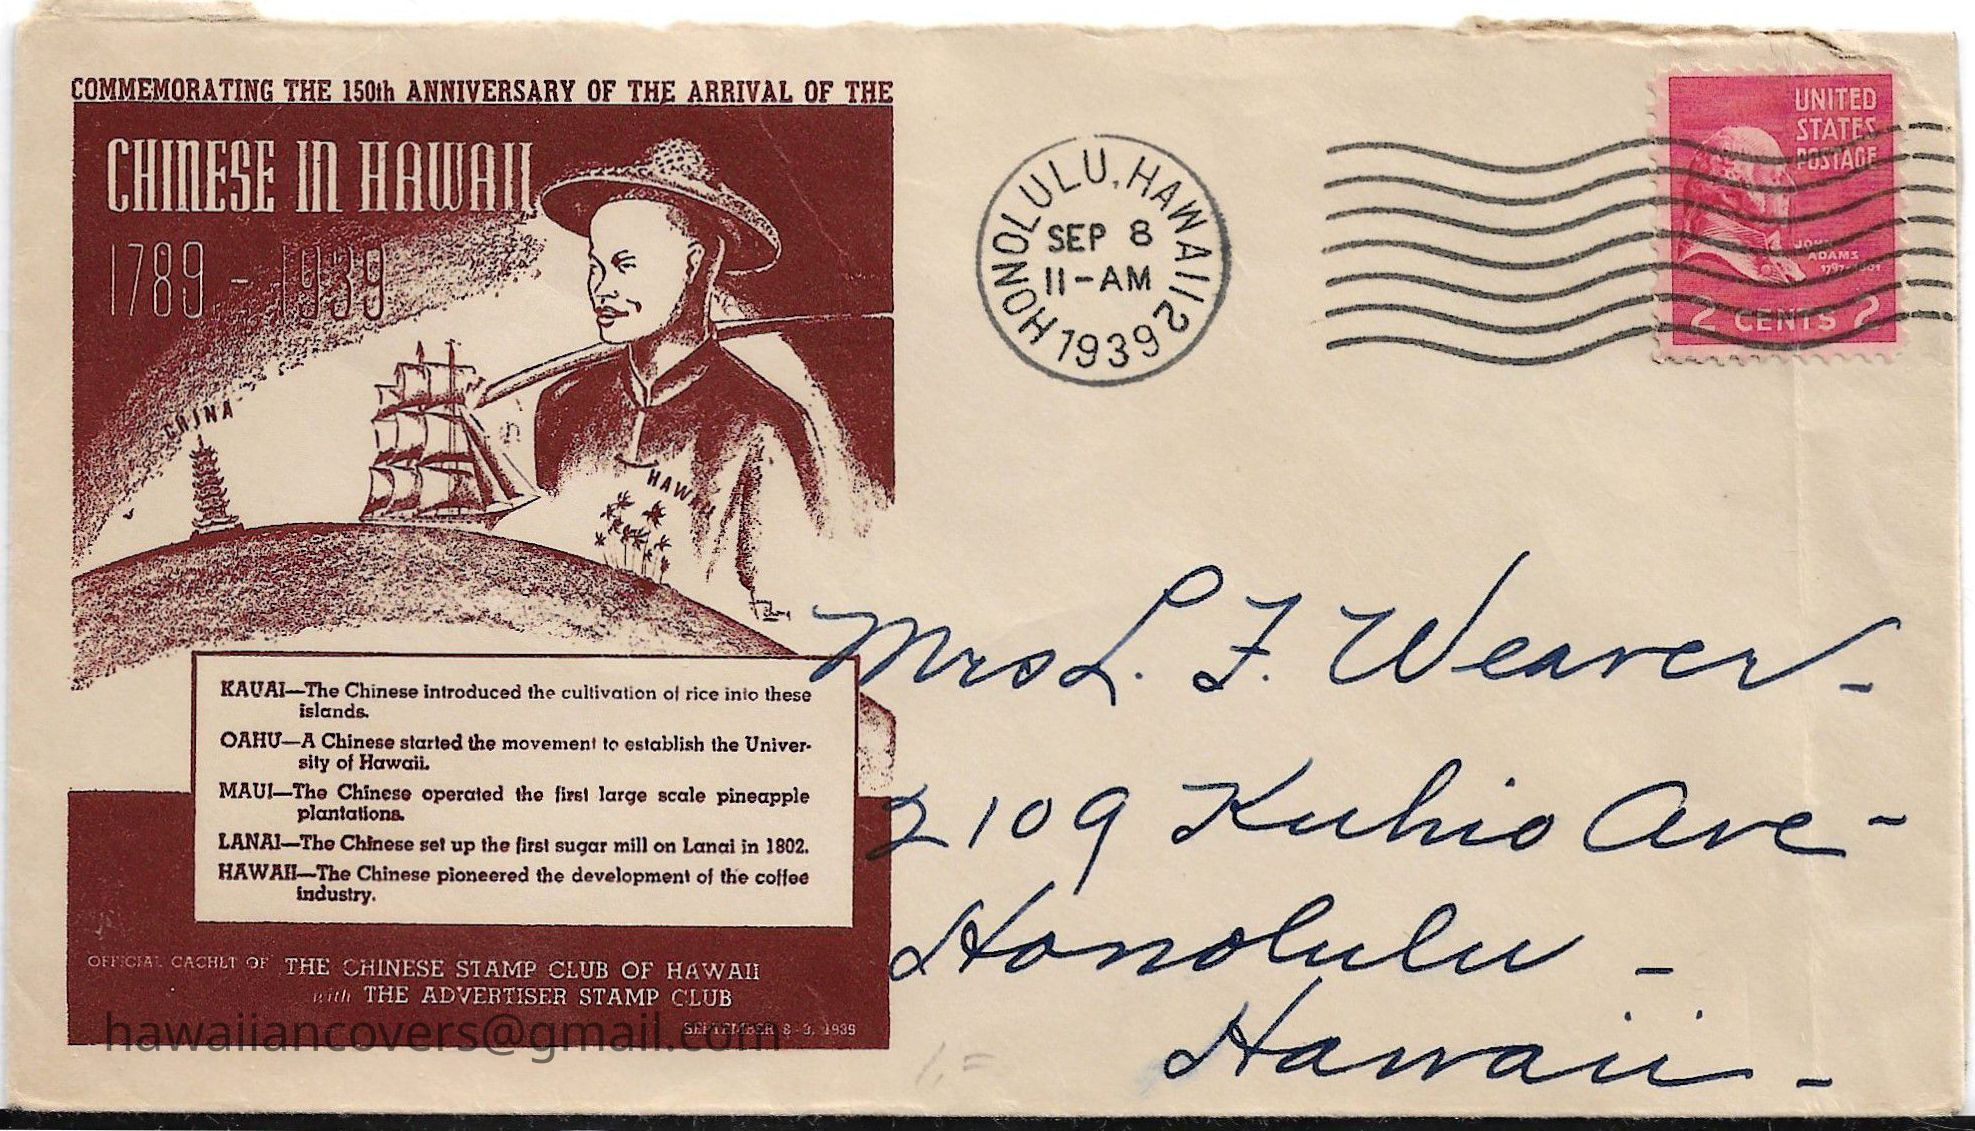 COMMEMORATING THE 150th ANNIVERSARY OF THE ARRIVAL OF THE
CHINESE IN HAWAII
1789 - 1939
CHINA
HAWAII
KAUAI—The Chinese introduced the cultivation of rice into these
islands.
OAHU—A Chinese started the movement to establish the Univer-
sity of Hawaii.
MAUI—The Chinese operated the first large scale pineapple
plantations.
LANAI—The Chinese set up the first sugar mill on Lanai in 1802.
HAWAII—The Chinese pioneered the development of the coffee
industry.
OFFICIAL CACHET OF THE CHINESE STAMP CLUB OF HAWAII
with THE ADVERTISER STAMP CLUB
SEPTEMBER 8-9, 1939
hawaiiancovers@gmail.com
HONOLULU, HAWAII 2
SEP 8
11-AM
1939
UNITED
STATES
POSTAGE
JOHN
ADAMS
1797-1801
2 CENTS 2
Mrs L. F. Weaver -
2109 Kuhio Ave -
Honolulu -
Hawaii -